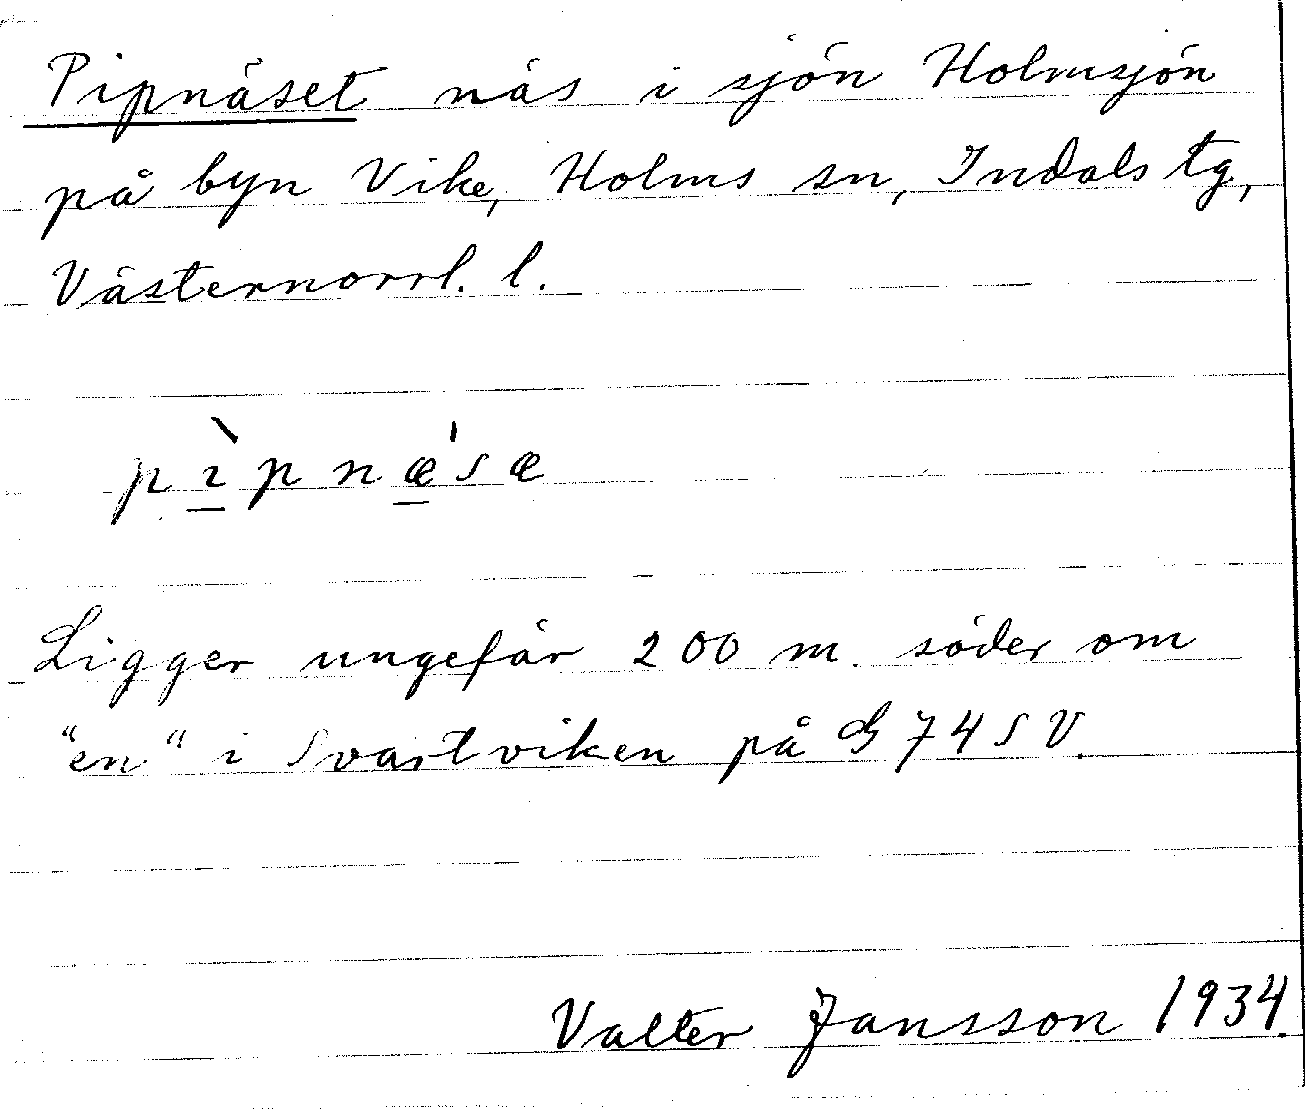 Pipnäset näs i sjön Holmsjön
på byn Vike, Holms sn, Indals tg,
Västernorrl. l.
pı̀pnæ'sæ
Ligger ungefär 200 m. söder om
"en" i Svartviken på G 74 SV.
Valter Jansson 1934.